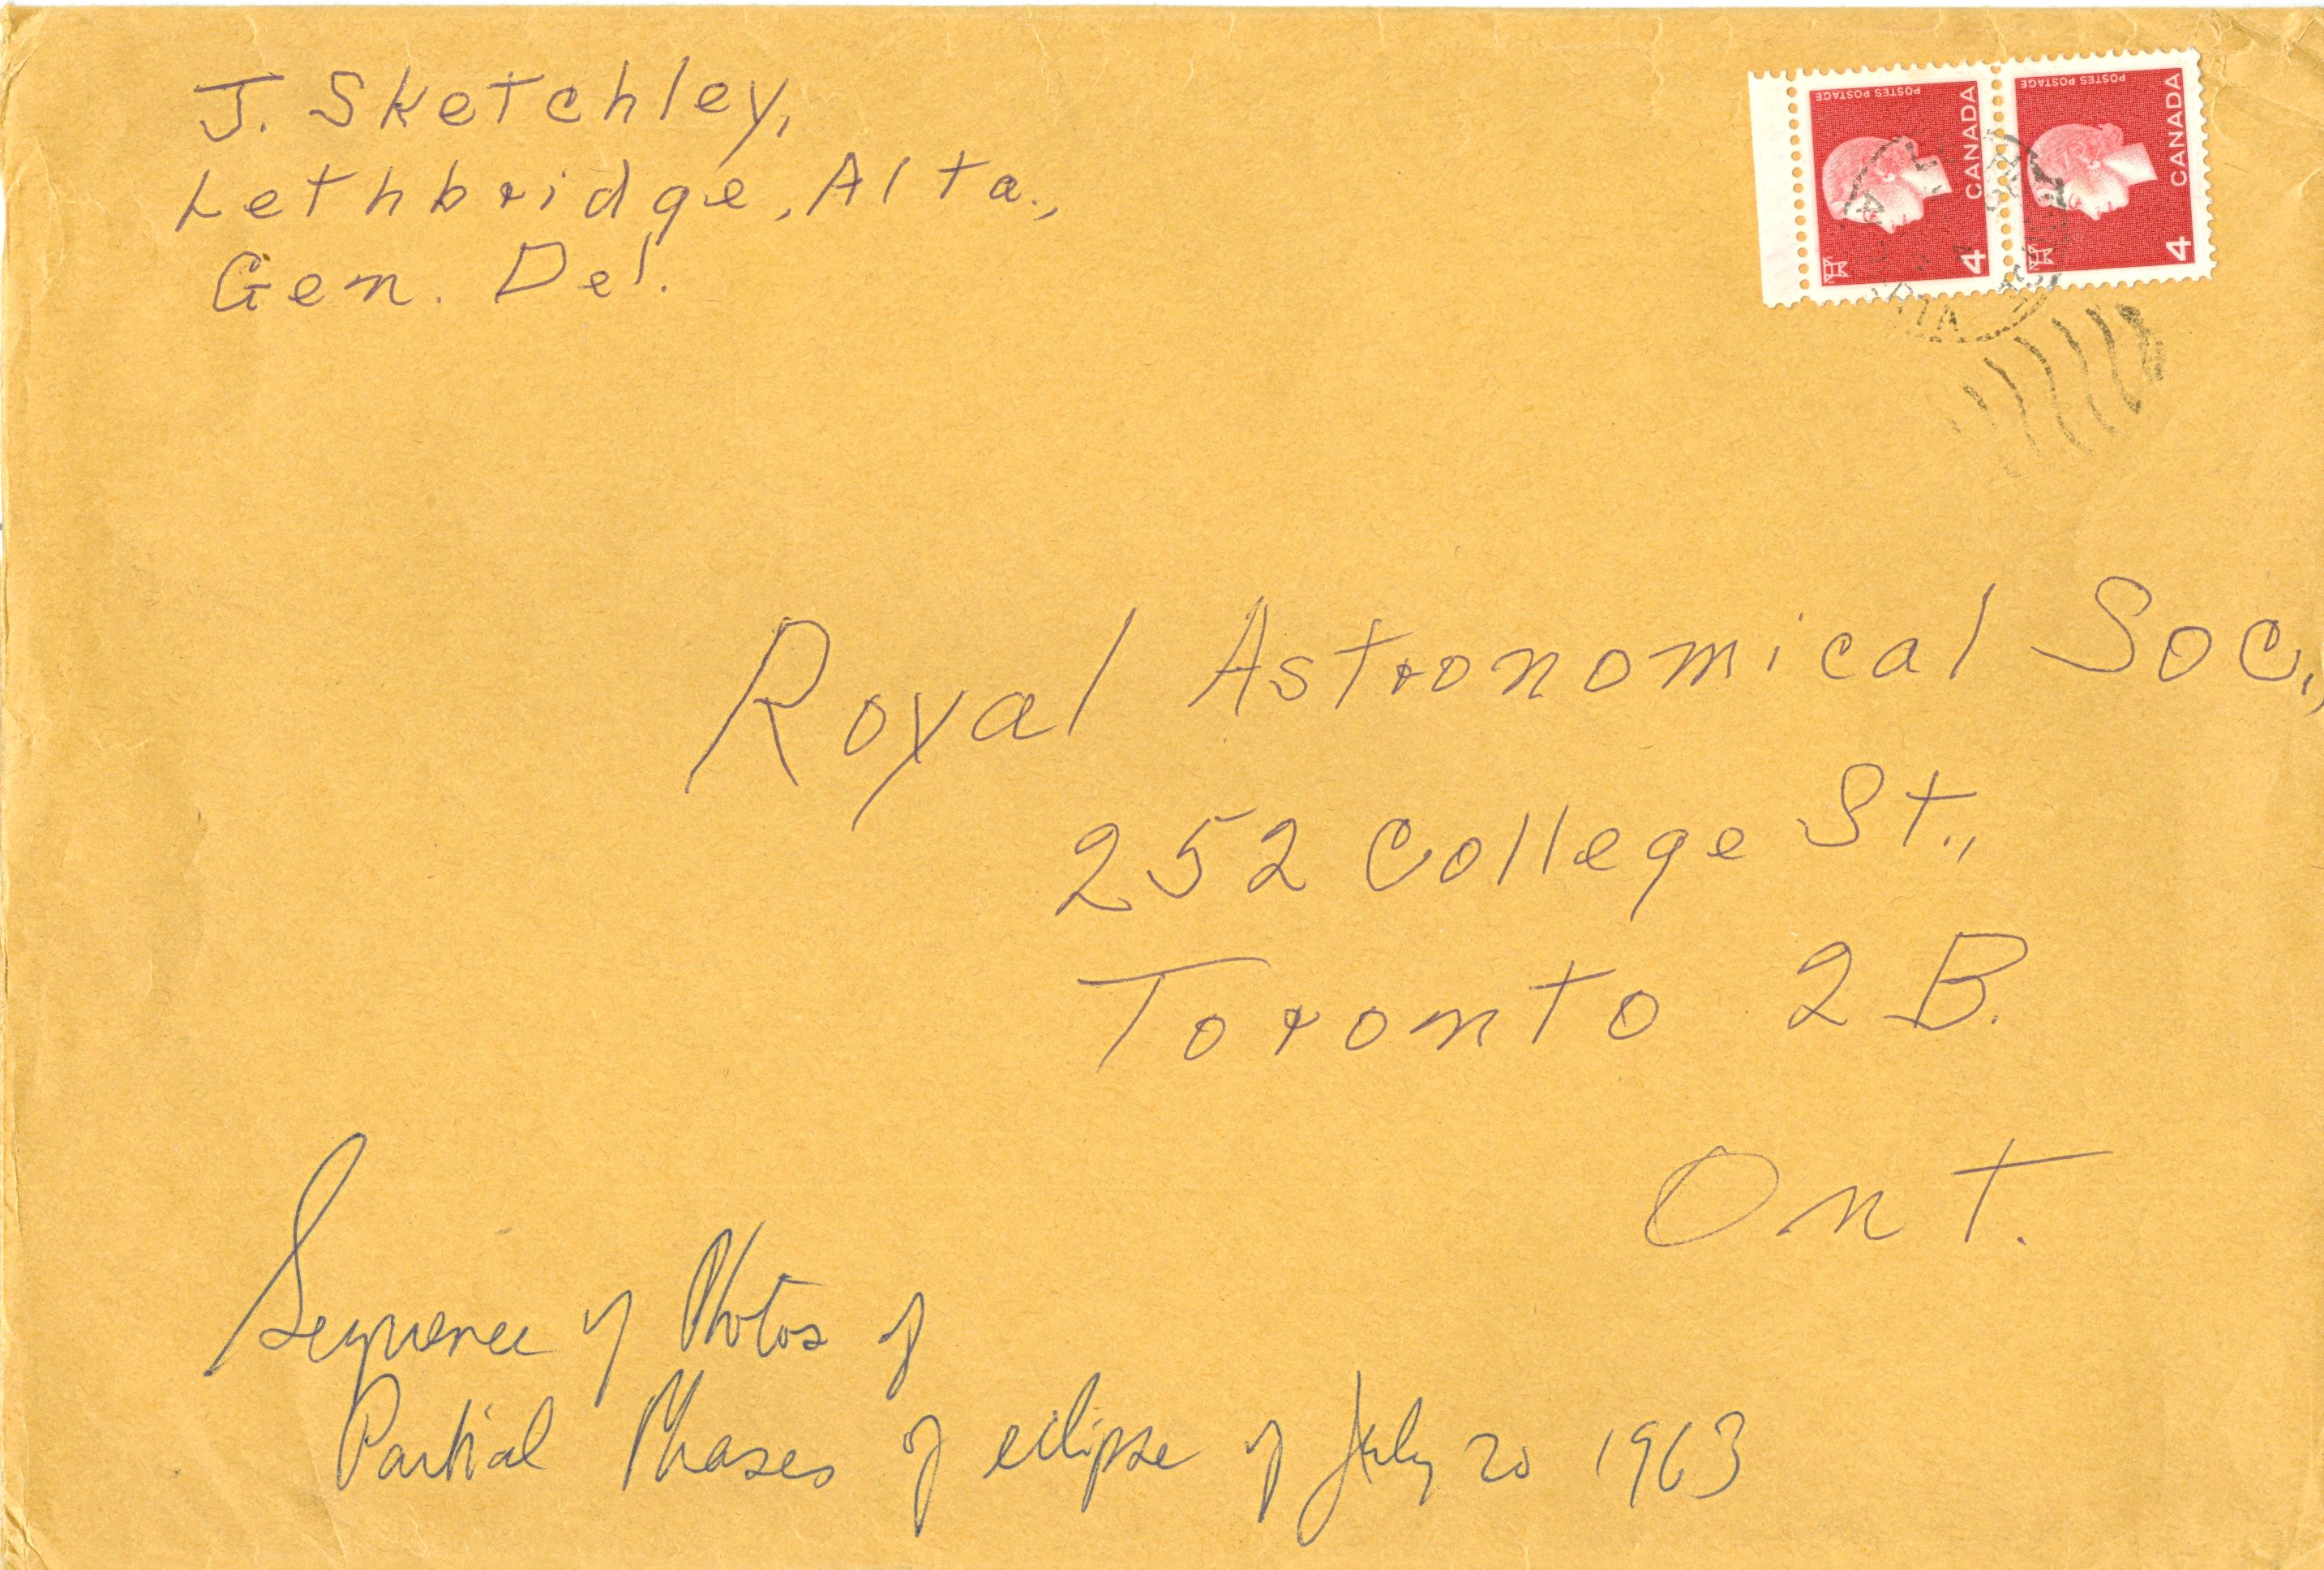 J. Sketchley,
Lethbridge, Alta.,
Gen. Del.
POSTES POSTAGE
CANADA
4
POSTES POSTAGE
CANADA
4
Royal Astronomical Soc.,
252 College St.,
Toronto 2 B.
Ont.
Sequence of Photos of
Partial Phases of eclipse of July 20 1963